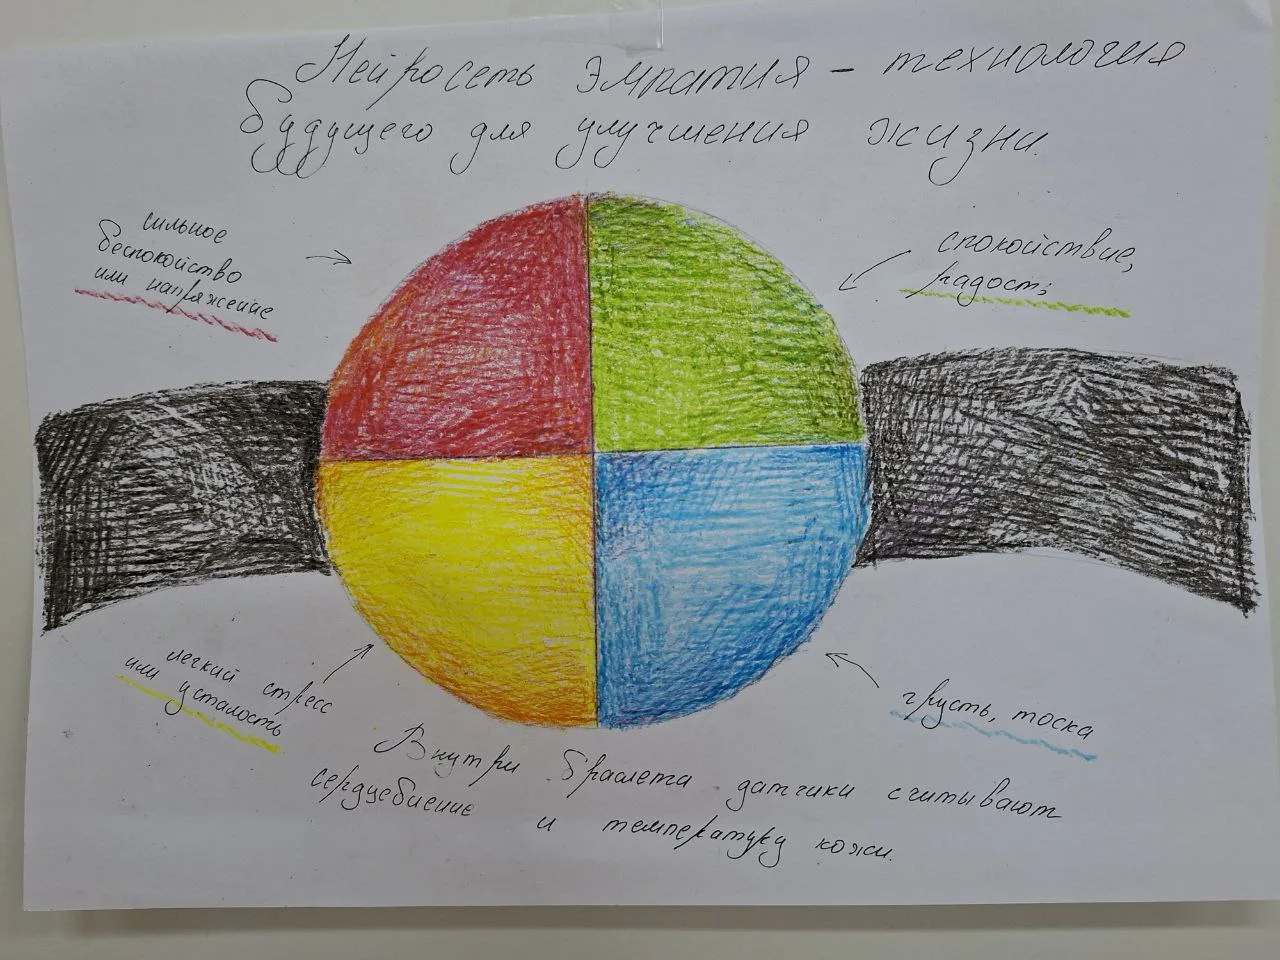 Нейросеть эмпатия – технология
будущего для улучшения жизни.
сильное
беспокойство
или напряжение
спокойствие,
радость
легкий стресс
или усталость
грусть, тоска
Внутри браслета датчики считывают
сердцебиение и температуру кожи.